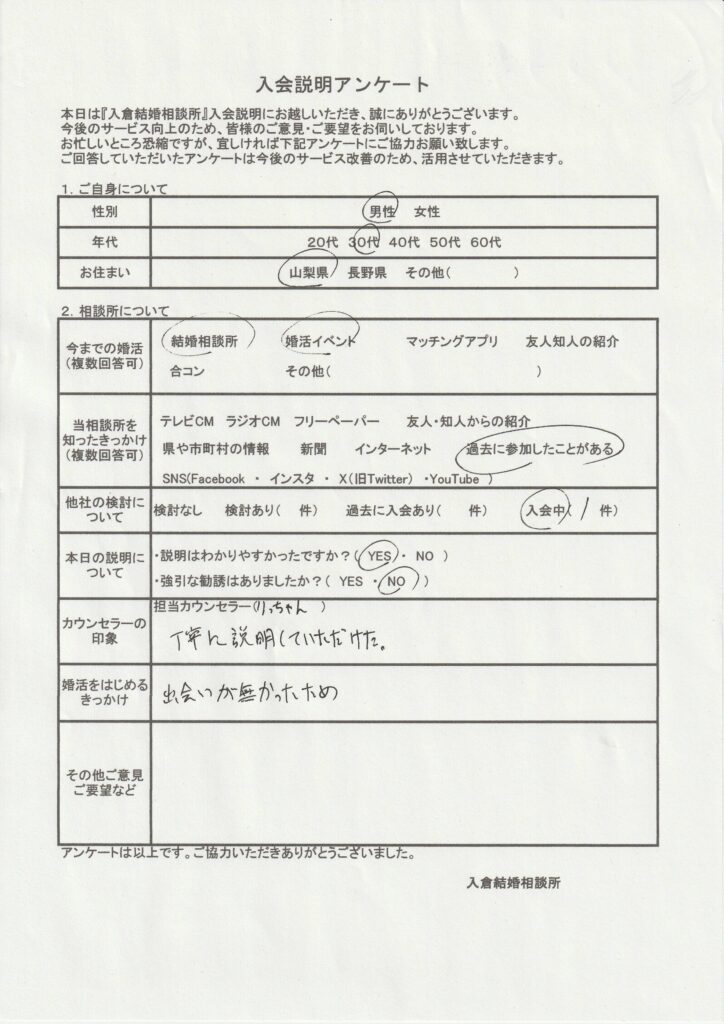 入会説明アンケート
本日は『入倉結婚相談所』入会説明にお越しいただき、誠にありがとうございます。
今後のサービス向上のため、皆様のご意見・ご要望をお伺いしております。
お忙しいところ恐縮ですが、宜しければ下記アンケートにご協力お願い致します。
ご回答していただいたアンケートは今後のサービス改善のため、活用させていただきます。
1．ご自身について
性別 男性 女性
年代 20代 30代 40代 50代 60代
お住まい 山梨県 長野県 その他( )
2．相談所について
今までの婚活 結婚相談所 婚活イベント マッチングアプリ 友人知人の紹介
(複数回答可) 合コン その他( )
当相談所を テレビCM ラジオCM フリーペーパー 友人・知人からの紹介
知ったきっかけ 県や市町村の情報 新聞 インターネット 過去に参加したことがある
(複数回答可) SNS(Facebook ・ インスタ ・ X(旧Twitter) ・YouTube )
他社の検討に
ついて 検討なし 検討あり( 件) 過去に入会あり( 件) 入会中( 1 件)
本日の説明に ・説明はわかりやすかったですか？( YES ・ NO )
ついて ・強引な勧誘はありましたか？( YES ・ NO )
カウンセラーの 担当カウンセラー(りっちゃん )
印象 丁寧に説明していただけた。
婚活をはじめる
きっかけ 出会いが無かったため
その他ご意見
ご要望など
アンケートは以上です。ご協力いただきありがとうございました。
入倉結婚相談所